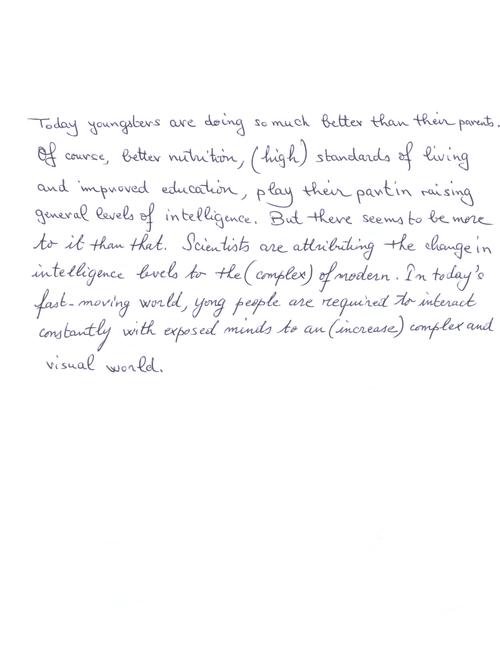 Today youngsters are doing so much better than their parents.
Of course, better nutrition, (high) standards of living
and improved education, play their part in raising
general levels of intelligence. But there seems to be more
to it than that. Scientists are attributing the change in
intelligence levels to the (complex) of modern. In today's
fast-moving world, yong people are required to interact
constantly with exposed minds to an (increase) complex and
visual world.